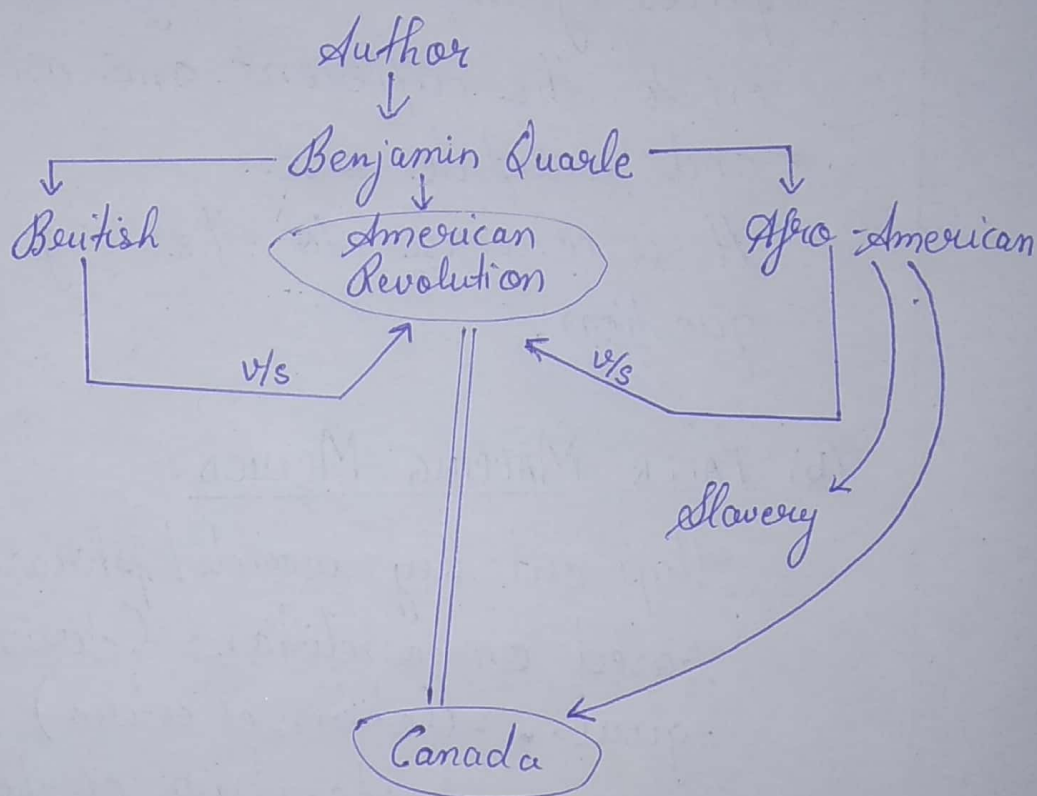 Author
Benjamin Quarle
British
American
Revolution
Afro-American
v/s
v/s
Slavery
Canada